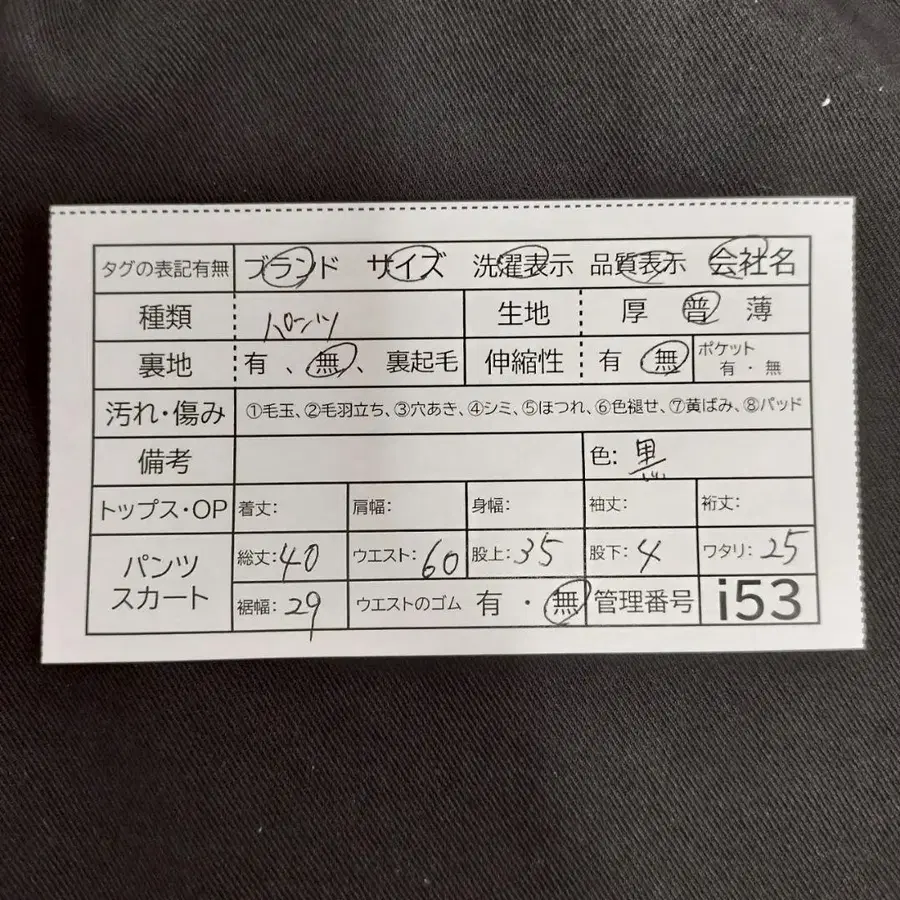 タグの表記有無 ブランド サイズ 洗濯表示 品質表示 会社名
種類 パンツ 生地 厚 普 薄
裏地 有 、無、 裏起毛 伸縮性 有 無 ポケット 有・無
汚れ・傷み ①毛玉、②毛羽立ち、③穴あき、④シミ、⑤ほつれ、⑥色褪せ、⑦黄ばみ、⑧パッド
備考 色: 黒
トップス・OP 着丈: 肩幅: 身幅: 袖丈: 裄丈:
パンツ スカート 総丈:40 ウエスト:60 股上:35 股下:4 ワタリ:25
裾幅:29 ウエストのゴム 有・無 管理番号 i53